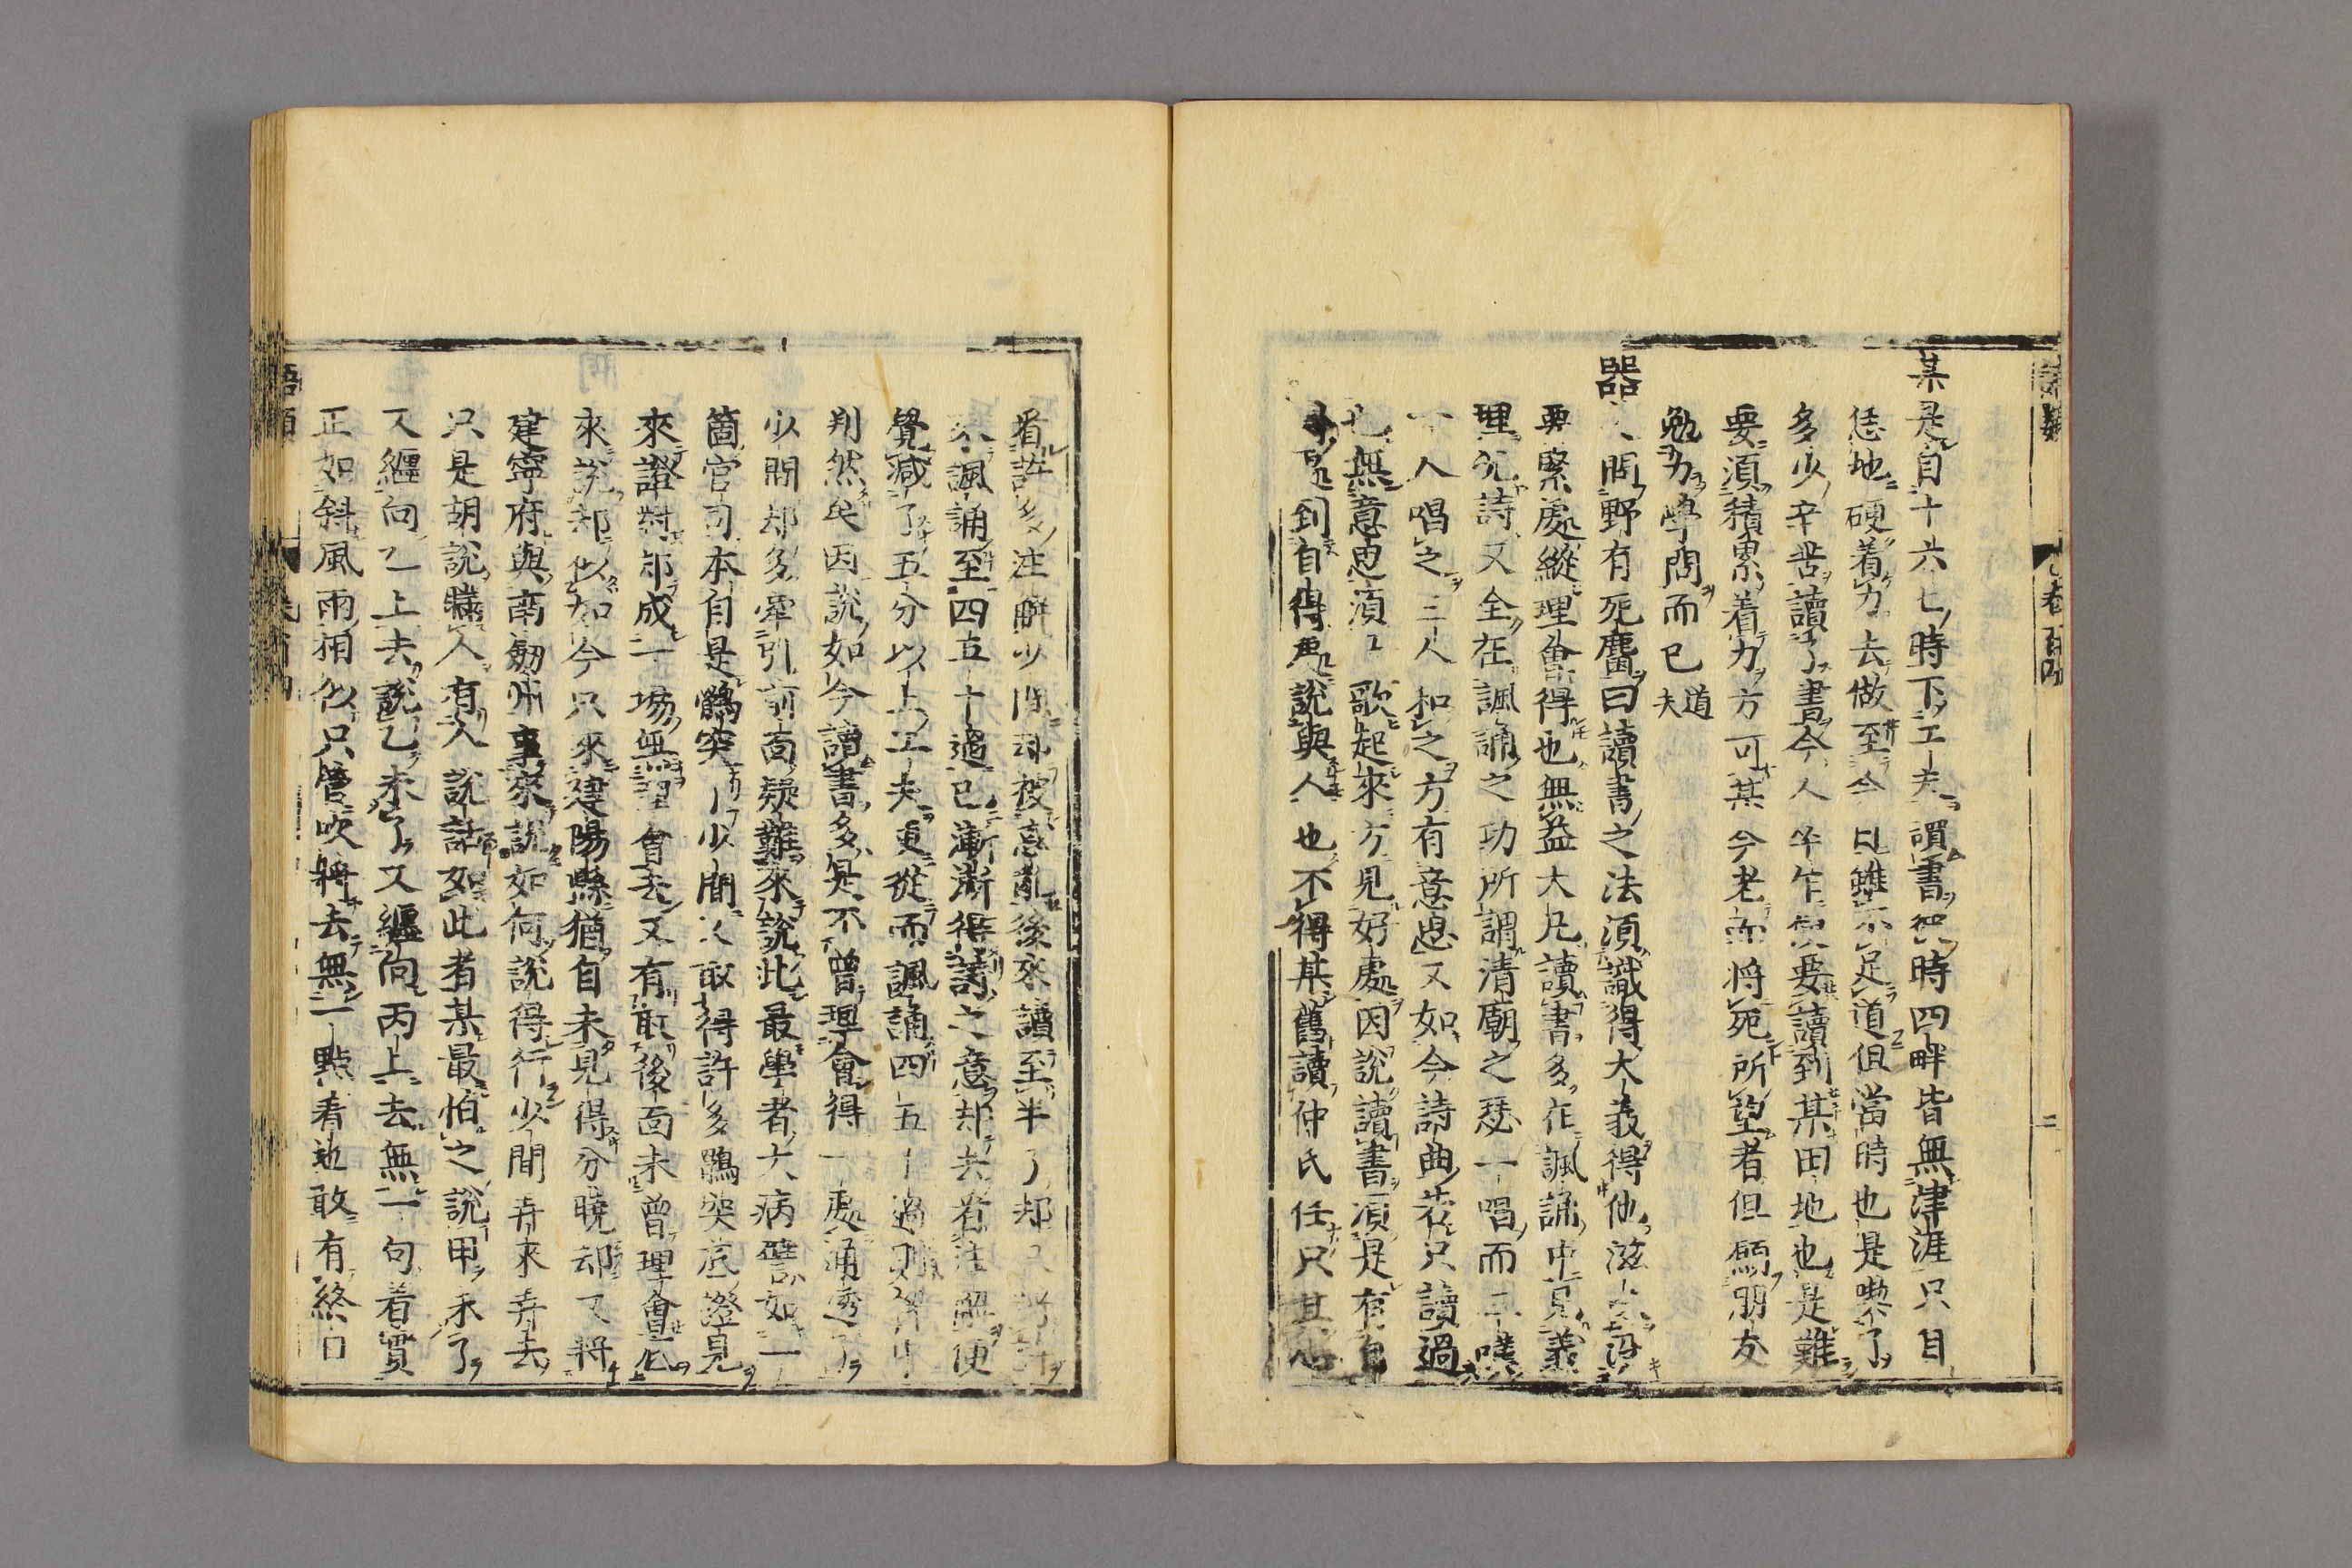 語類 卷百四 二
某是自十六七時下工夫讀書彼時四畔皆無津涯只自
恁地硬着力去做至今日雖不足道但當時也是喫了
多少辛苦讀了書今人卒乍便要讀到某田地也是難
要須積累着力方可某今老而將死所望者但願朋友
勉力學問而已 道夫
器之問野有死麕曰讀書之法須識得大義得他滋味沒
要緊處縱理會得也無益大凡讀書多在諷誦中見義
理況詩又全在諷誦之功所謂清廟之瑟一唱而三嘆
一人唱之三人和之方有意思又如今詩曲若只讀過
也無意思須 歌起來方見好處因説讀書須是有自
得處到自得處説與人也不得某舊讀仲氏任只其心
看許多注解少間却被惑亂後來讀至半了却只將詩
來諷誦至四五十過已漸漸得詩之意却去看注解便
覺減了五分以上工夫更從而諷誦四五十過則胸中
判然矣因説如今讀書多是不曾理會得一處通透了
少間却多牽引前面疑難來説此最學者大病譬如一
箇官司本自是鶻突了少間又取得許多鶻突底證見
來證對却成一場無理會去又有取後面未曾理會底
來説却似如今只來建陽縣猶自未見得分曉却又將
建寧府與南劒州事來説如何説得行少間弄來弄去
只是胡説瞞人有人説話如此者某最怕之説甲未了
又纏向乙上去説乙未了又纏向丙上去無一句着實
正如斜風雨相似只管吹將去無一點着地敢有終日
語類